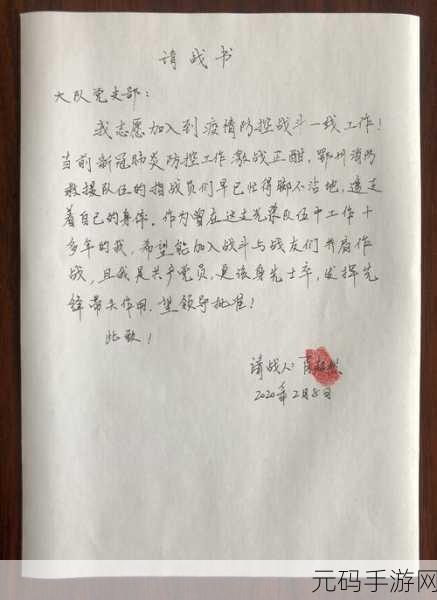 请战书
大队党支部：
我志愿加入到疫情防控战斗一线工作！
当前新冠肺炎防控工作激战正酣，鄂州消防
救援队伍的指战员们早已忙得脚不沾地，透支
着自己的身体。作为曾在这支光荣队伍中工作十
多年的我，希望能加入战斗与战友们并肩作
战，且我是共产党员，更该身先士卒，发挥先
锋带头作用。望领导批准！
此致！
请战人：
2020年2月8日
元码手游网